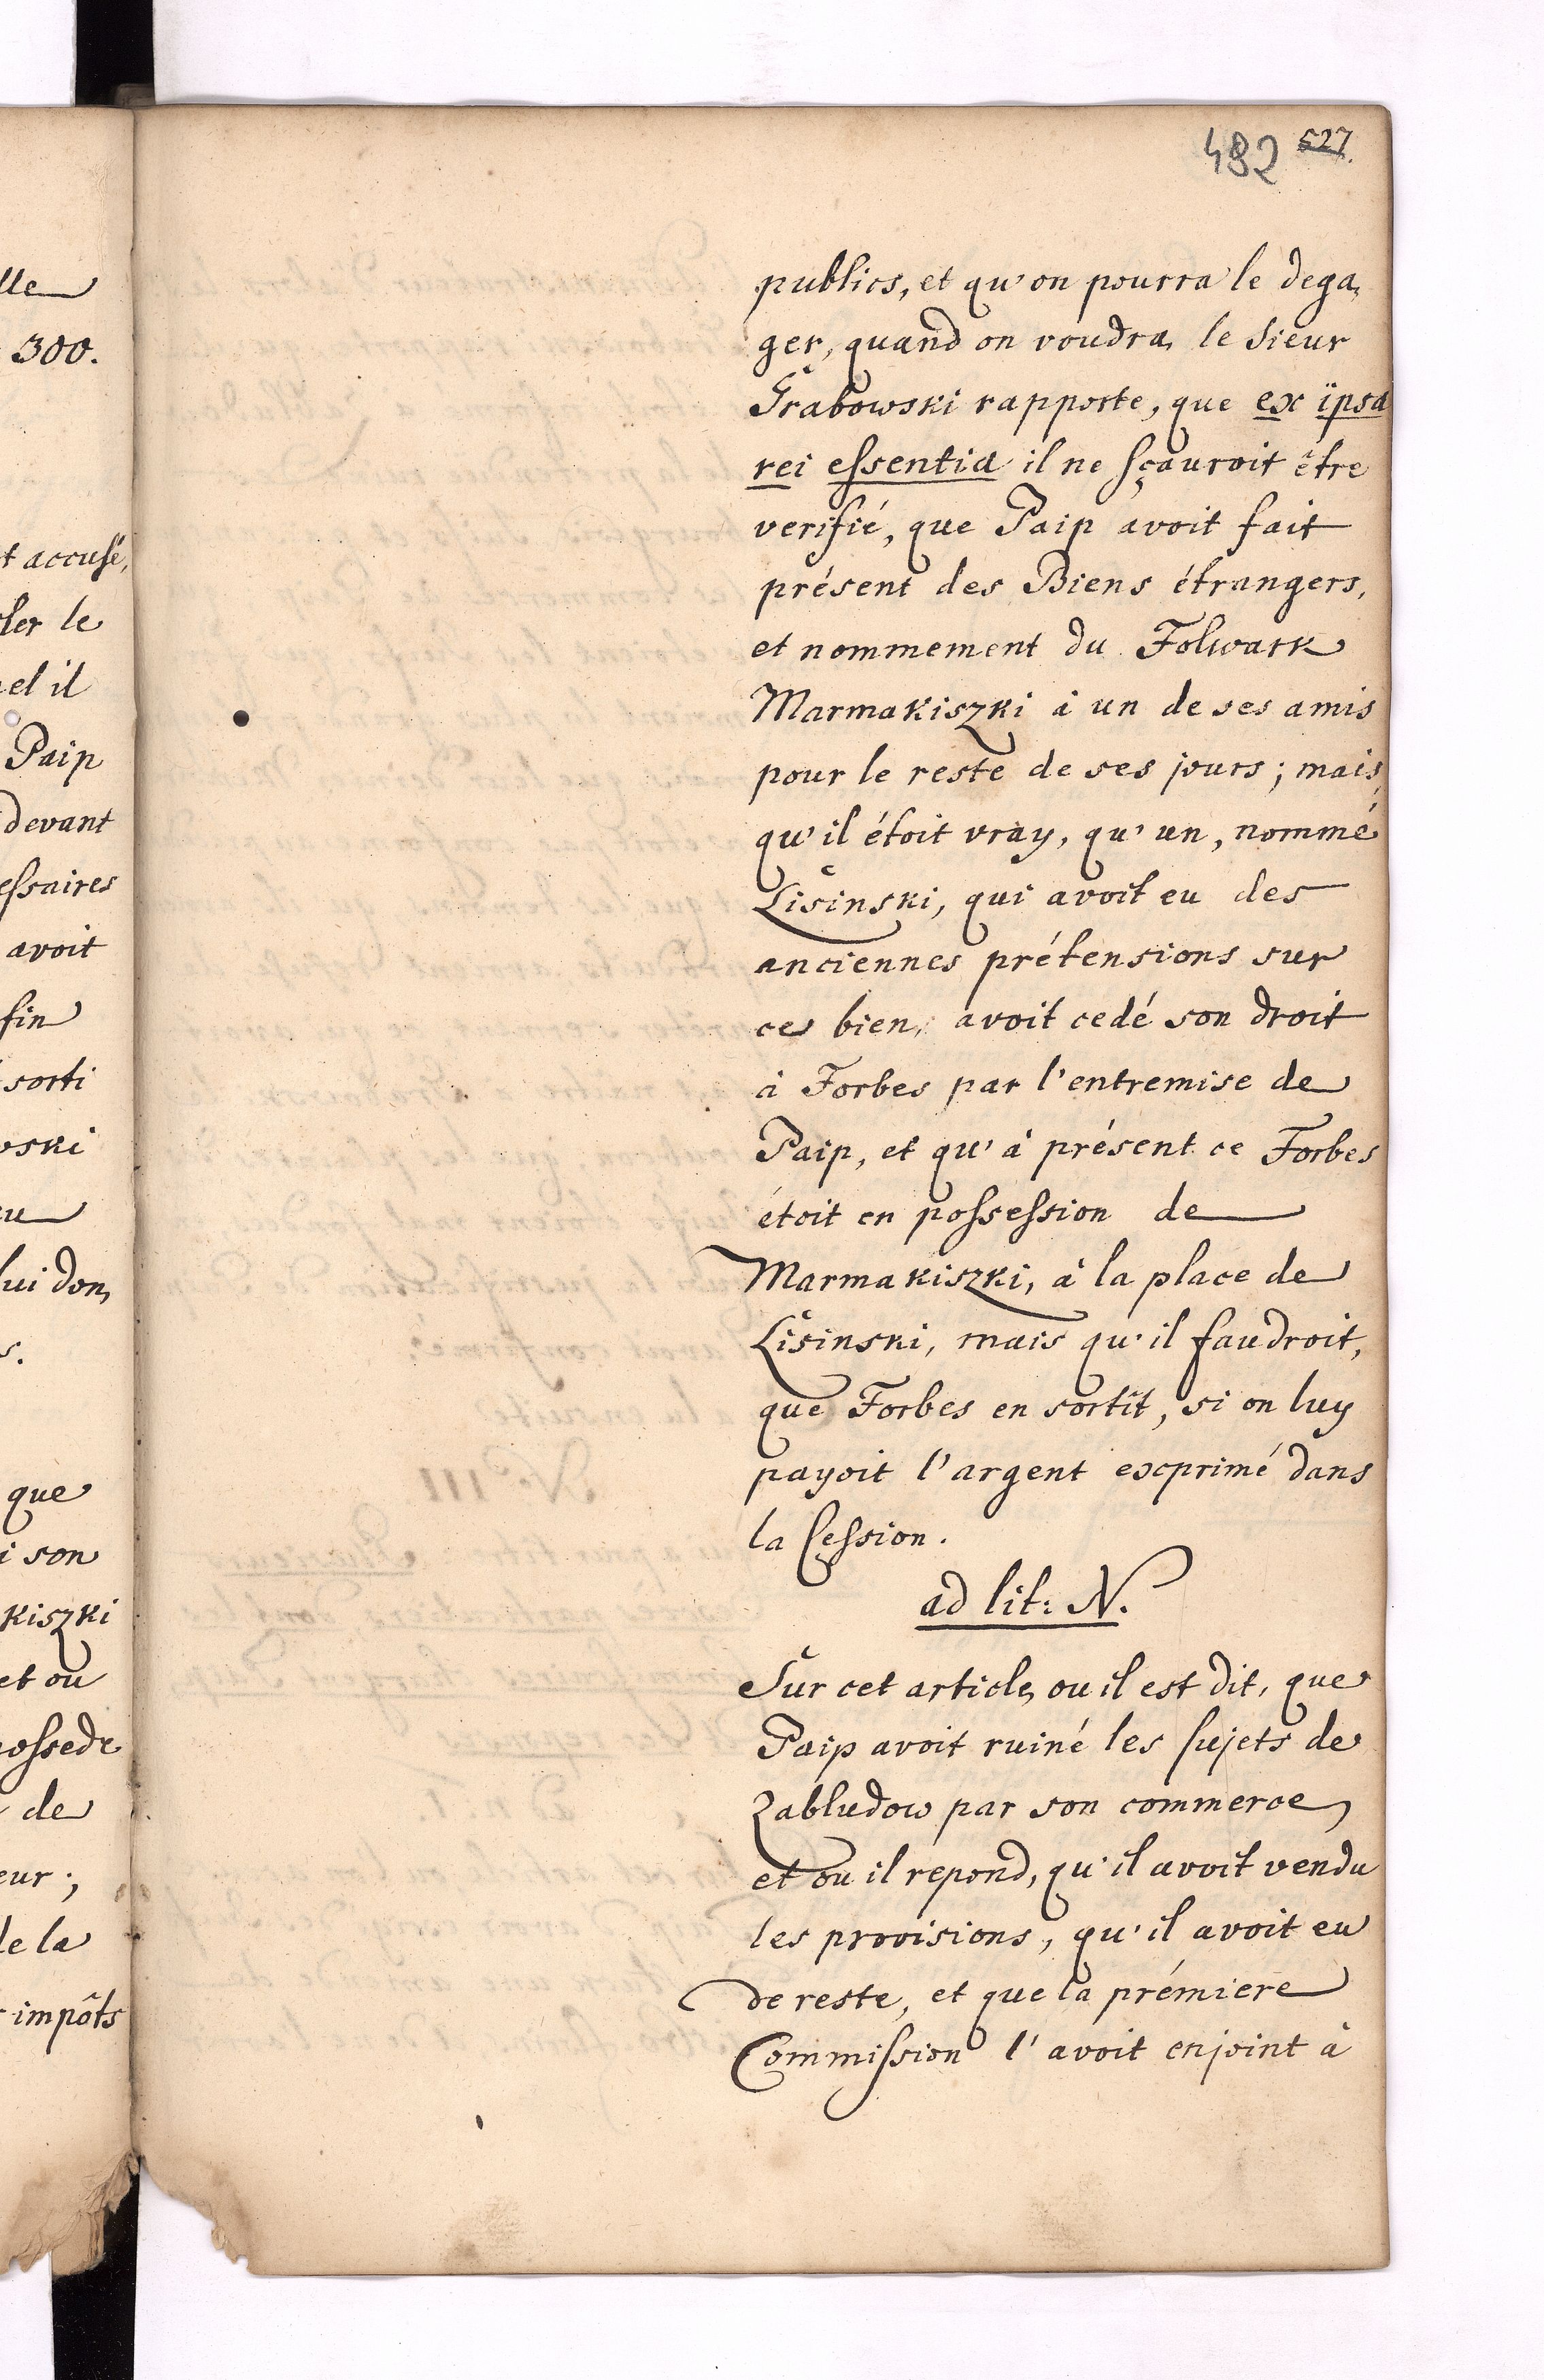 lle
300.
t accusé,
ler le
el il
Paip
devant
essaires
avoit
fin
sorti
wski
eu
lui don,
s.
que
i son
kiszki
et ou
possede
de
eur;
de la
impôts
482 527.
publics, et qu'on pourra le dega,
ger, quand on voudra, le Sieur
Grabowski rapporte, que ex ipsa
rei essentia il ne sçauroit être
verifié, que Paip avoit fait
présent des Biens étrangers,
et nommement du Folwark
Marmakiszki à un de ses amis
pour le reste de ses jours; mais,
qu'il étoit vray, qu'un, nommé
Lisinski, qui avoit eu des
anciennes prétensions sur
ce bien, avoit cedé son droit
à Forbes par l'entremise de
Paip, et qu'à présent ce Forbes
étoit en possession de
Marmakiszki, à la place de
Lisinski, mais qu'il faudroit,
que Forbes en sortît, si on luy
payoit l'argent exprimé dans
la Cession.
ad lit: N.
Sur cet article, ou il est dit, que
Paip avoit ruiné les sujets de
Zabludow par son commerce,
et ou il repond, qu'il avoit vendu
les provisions, qu'il avoit eu
de reste, et que la prémiere
Commission l'avoit enjoint à